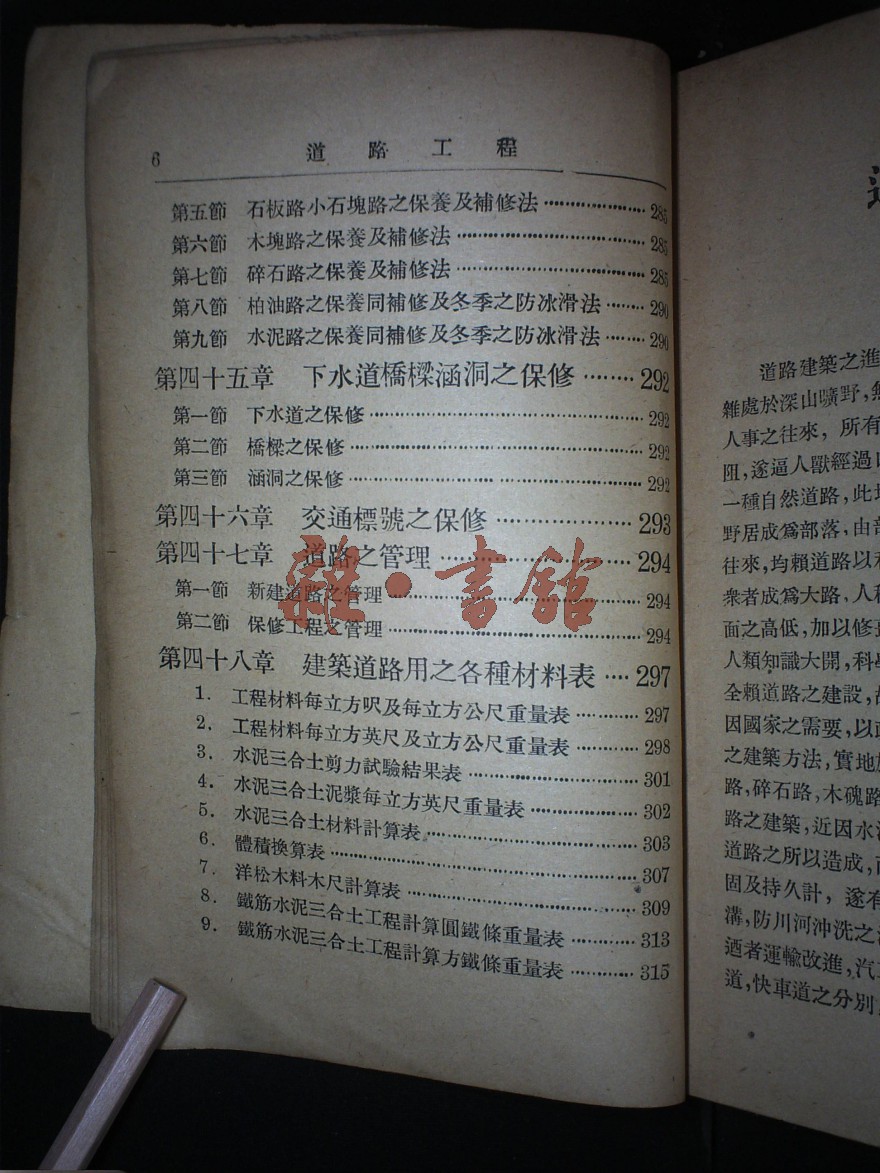 6 道路工程
第五節 石板路小石塊路之保養及補修法 285
第六節 木塊路之保養及補修法 285
第七節 碎石路之保養及補修法 285
第八節 柏油路之保養同補修及冬季之防冰滑法 290
第九節 水泥路之保養同補修及冬季之防冰滑法 290
第四十五章 下水道橋樑涵洞之保修 292
第一節 下水道之保修 292
第二節 橋樑之保修 292
第三節 涵洞之保修 292
第四十六章 交通標號之保修 293
第四十七章 道路之管理 294
第一節 新建道路之管理 294
第二節 保修工程之管理 294
第四十八章 建築道路用之各種材料表 297
1. 工程材料每立方呎及每立方公尺重量表 297
2. 工程材料每立方英尺及立方公尺重量表 298
3. 水泥三合土剪力試驗結果表 301
4. 水泥三合土泥漿每立方英尺重量表 302
5. 水泥三合土材料計算表 303
6. 體積換算表 307
7. 洋松木料木尺計算表 309
8. 鐵筋水泥三合土工程計算圓鐵條重量表 313
9. 鐵筋水泥三合土工程計算方鐵條重量表 315
雜·書館
道路建築之進
雜處於深山曠野,無
人事之往來,所有
阻,遂逼人獸經過
一種自然道路,此
野居成爲部落,由
往來,均賴道路以
衆者成爲大路,人
面之高低,加以修
人類知識大開,科學
全賴道路之建設,
因國家之需要,以
之建築方法,實地
路,碎石路,木磈路
路之建築,近因水
道路之所以造成,
固及持久計,遂有
溝,防川河沖洗之
迺者運輸改進,汽
道,快車道之分別